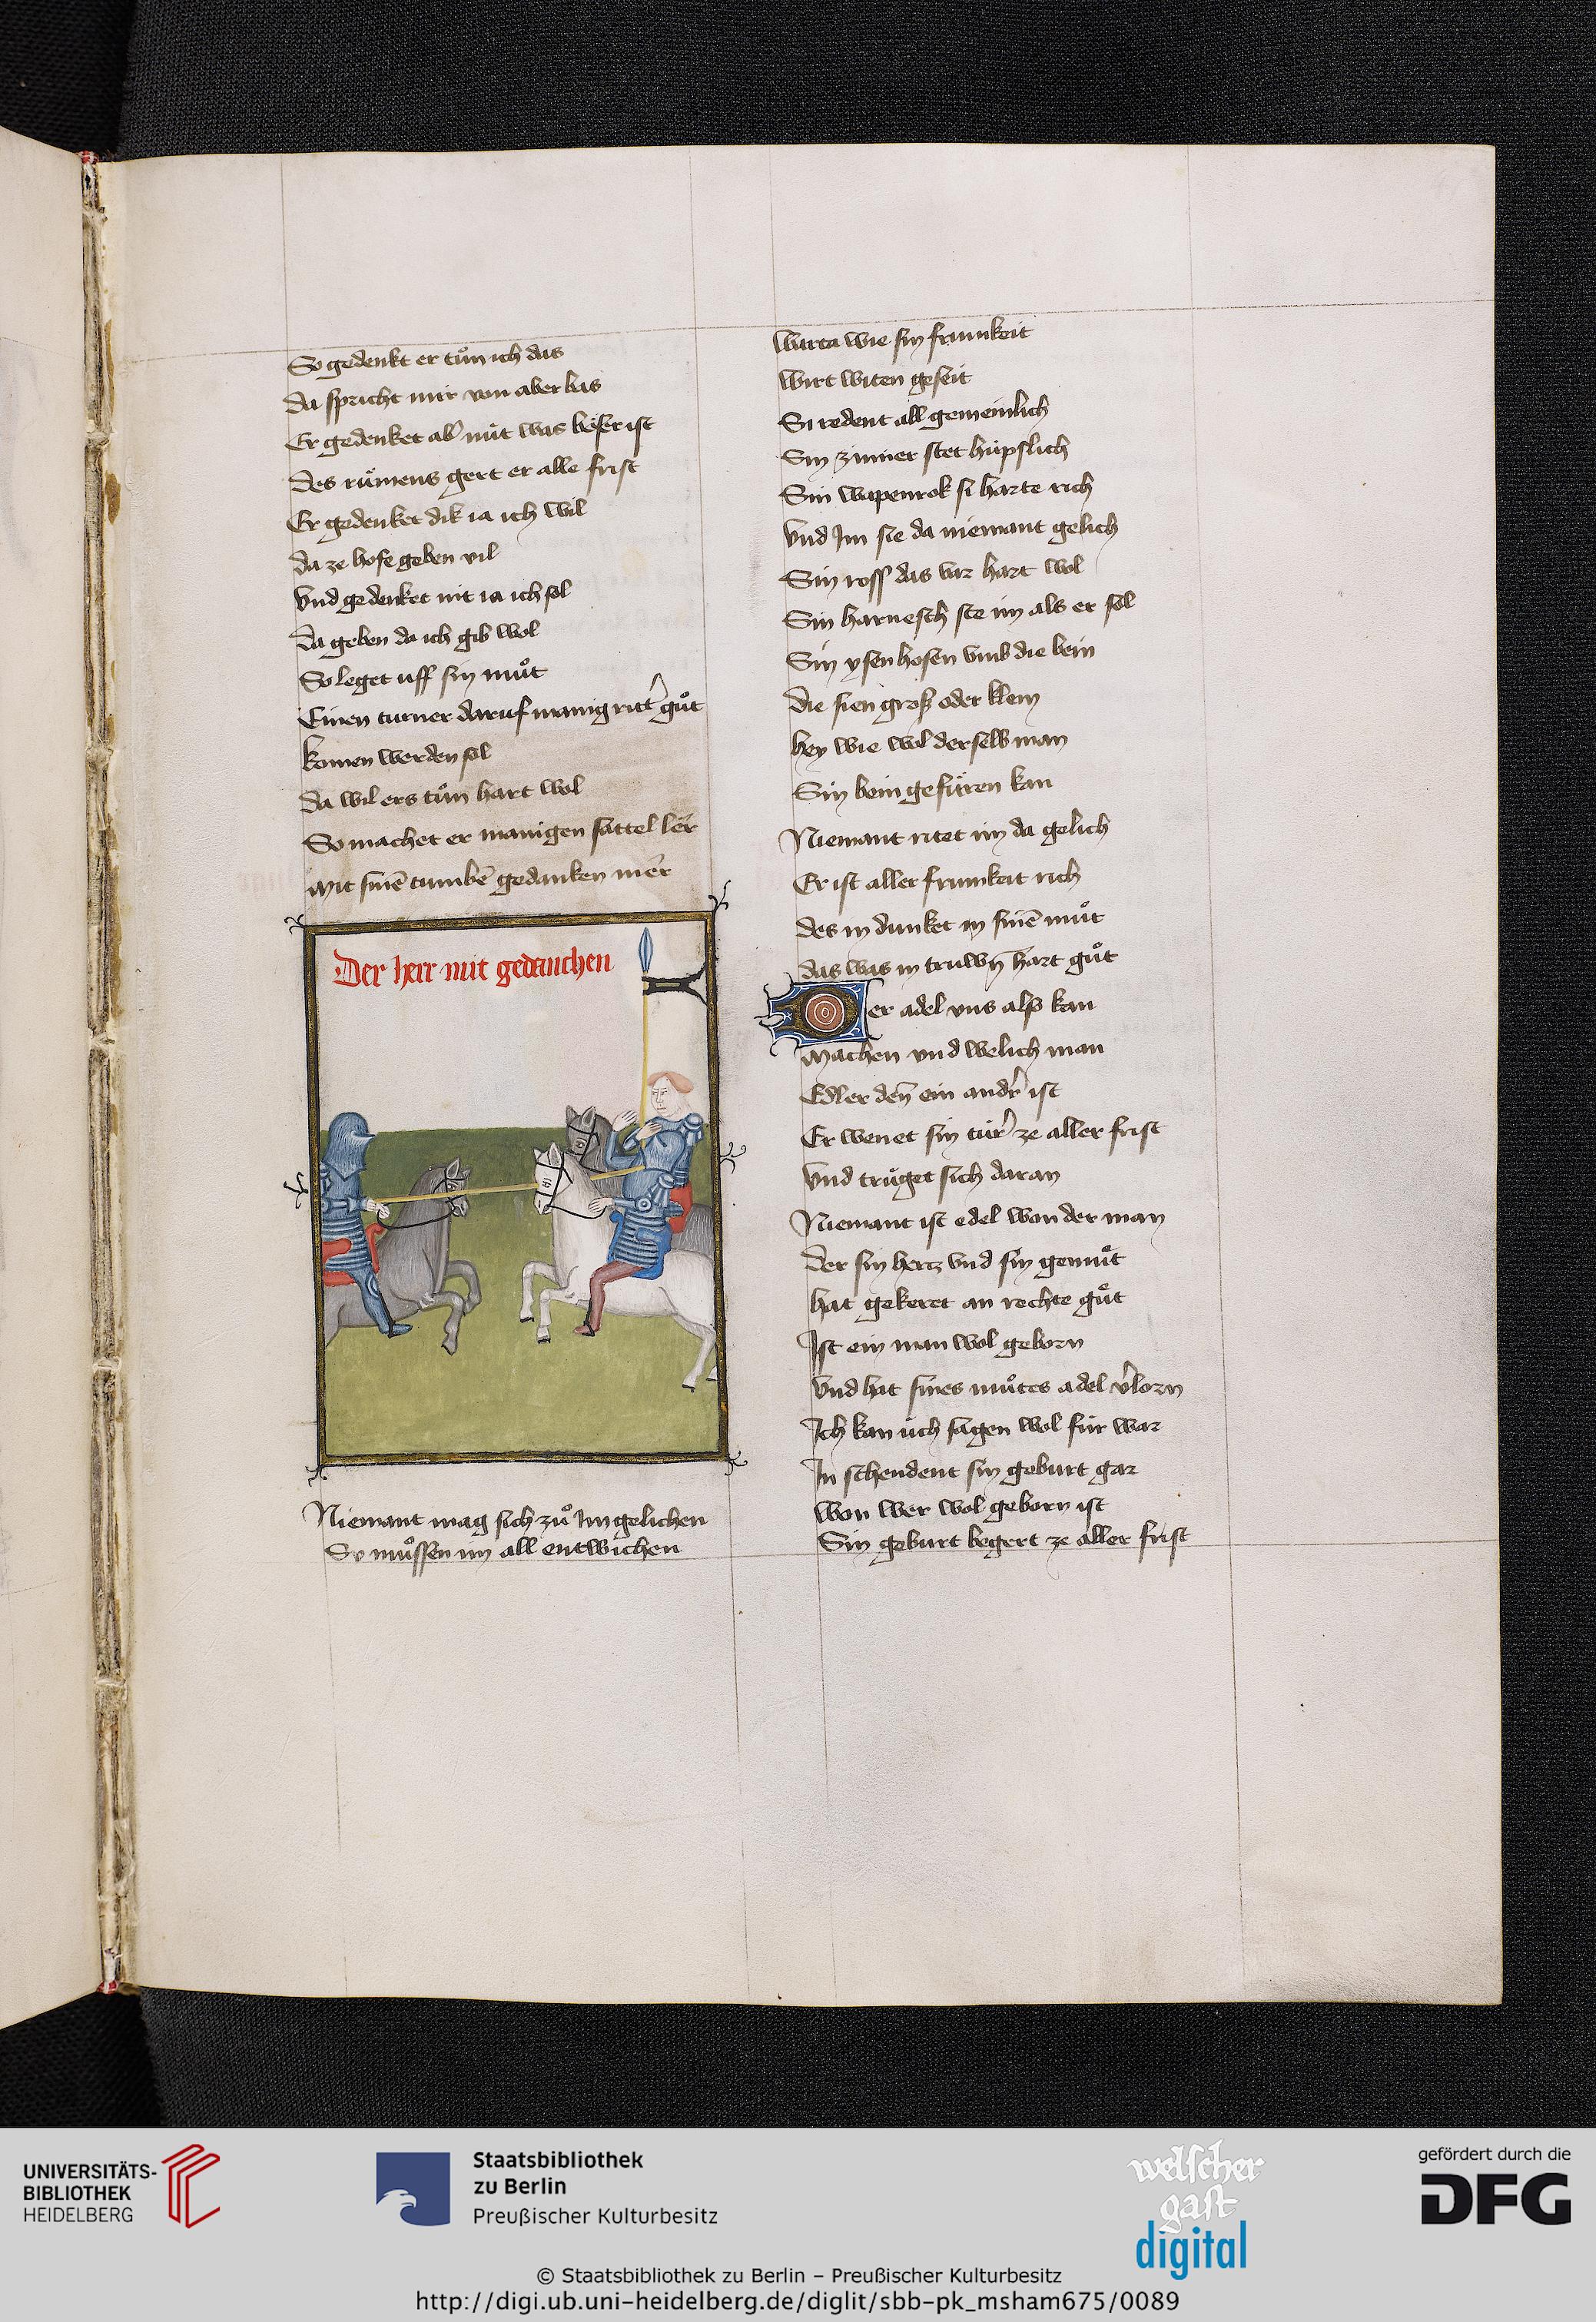 So gedenkt er tuͦn ich das
da spricht mir von aber bas
Er gedenket ab̾ nuͤt was boͤser ist
des ruͤmens gert er alle frist
Er gedenket dik ia ich wil
da ze hofe geben vil
vnd gedenket nit ia ich sol
da geben da ich gib wol
So leget uff sin muͦt
Einen turner daruf manig ritt̾ guͦt
komen werden sol
da wil ers tuͦn hart wol
So machet er manigen sattel ler
mit sinē tumbē gedanken mer
Der herr mit gedanchen
Niemant mag sich zuͦ Im gelichen
So muͦssen im all entwichen
warta wie sin frumkeit
wirt witen geseit
Si redent all gemeinlich
Sin zimier stet hüpslich
Sin wapenrok si harte rich
vnd Im sie da niemant gelich
Sin ross das var hart wol
Sin harnesch ste im als er sol
Sin ysenhosen vmb die bein
die sien groß oder klein
hey wie wol derselb man
Sin bein gefuͤren kan
Niemant ritet im da gelich
Er ist aller frumkeit rich
des in dunket in sinē muͦt
das was in truwn̄ hart guͦt
Der adel vns also kan
machen vnd welich man
Edler den̄ ein andr̾ ist
Er wenet sin tür̾ ze aller frist
vnd truͤget sich daran
Niemant ist edel won der man
der sin hertz vnd sin gemuͤt
hat gekeret an rechte guͤt
Ist ein man wol geborn
vnd hat sines muͦtes adel v̾lorn
Ich kan üch sagen wol für war
In schendent sin geburt gar
won wer wol geborn ist
Sin geburt begert ze aller frist
UNIVERSITÄTS-
BIBLIOTHEK
HEIDELBERG
Staatsbibliothek
zu Berlin
Preußischer Kulturbesitz
welscher
gast
digital
gefördert durch die
DFG
© Staatsbibliothek zu Berlin – Preußischer Kulturbesitz
http://digi.ub.uni-heidelberg.de/diglit/sbb-pk_msham675/0089